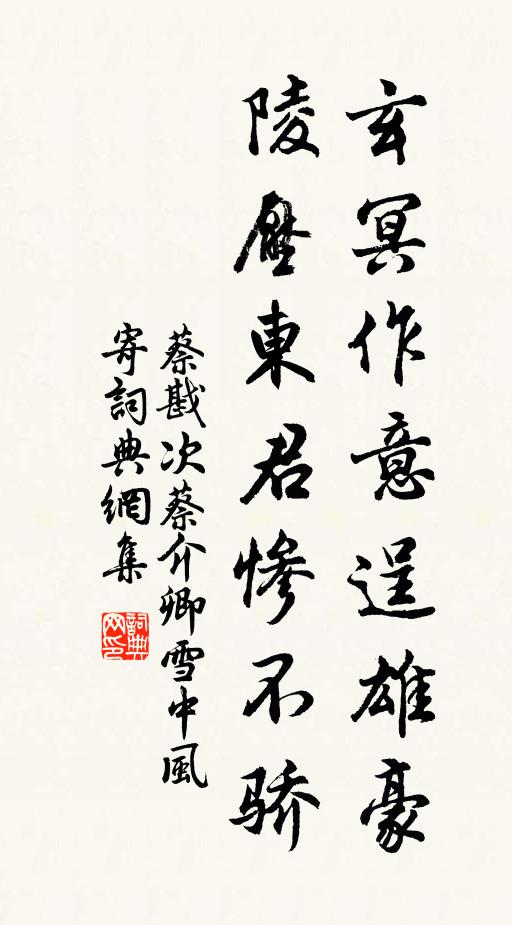 玄冥作意逞雄豪
陵壓東君慘不骄
蔡戡次蔡介卿雪中風
寄詞典網集
詞典网印